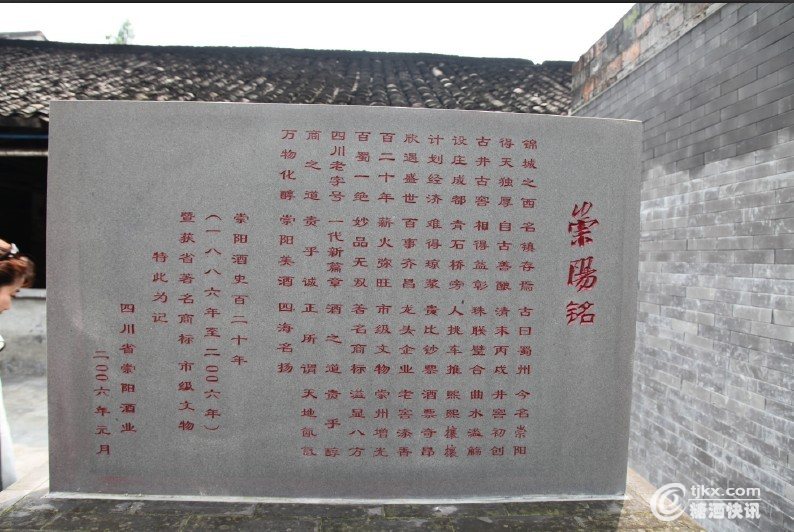 崇陽铭
锦城之西 名镇存焉 古曰蜀州 今名崇阳
得天独厚 自古善酿 清末丙戌 井窖初创
古井古窖 相得益彰 珠联璧合 曲水滥觞
设庄成都 青石桥旁 人挑车推 熙熙攘攘
计划经济 难得琼浆 贵比钞票 酒票奇昂
欣遇盛世 百事齐昌 龙头企业 老窖添香
百二十年 薪火弥旺 市级文物 崇州增光
百蜀一绝 妙品无双 著名商标 溢显八方
四川老字号 一代新篇章 酒之道贵乎醇
商之道贵乎诚 正所谓 天地氤氲
万物化醇 崇阳美酒 四海名扬
崇阳酒史百二十年
（一八八六年至二00六年）
暨获省著名商标 市级文物
特此为记
四川省崇阳酒业
二00六年元月
tjkx.com
糖酒快讯